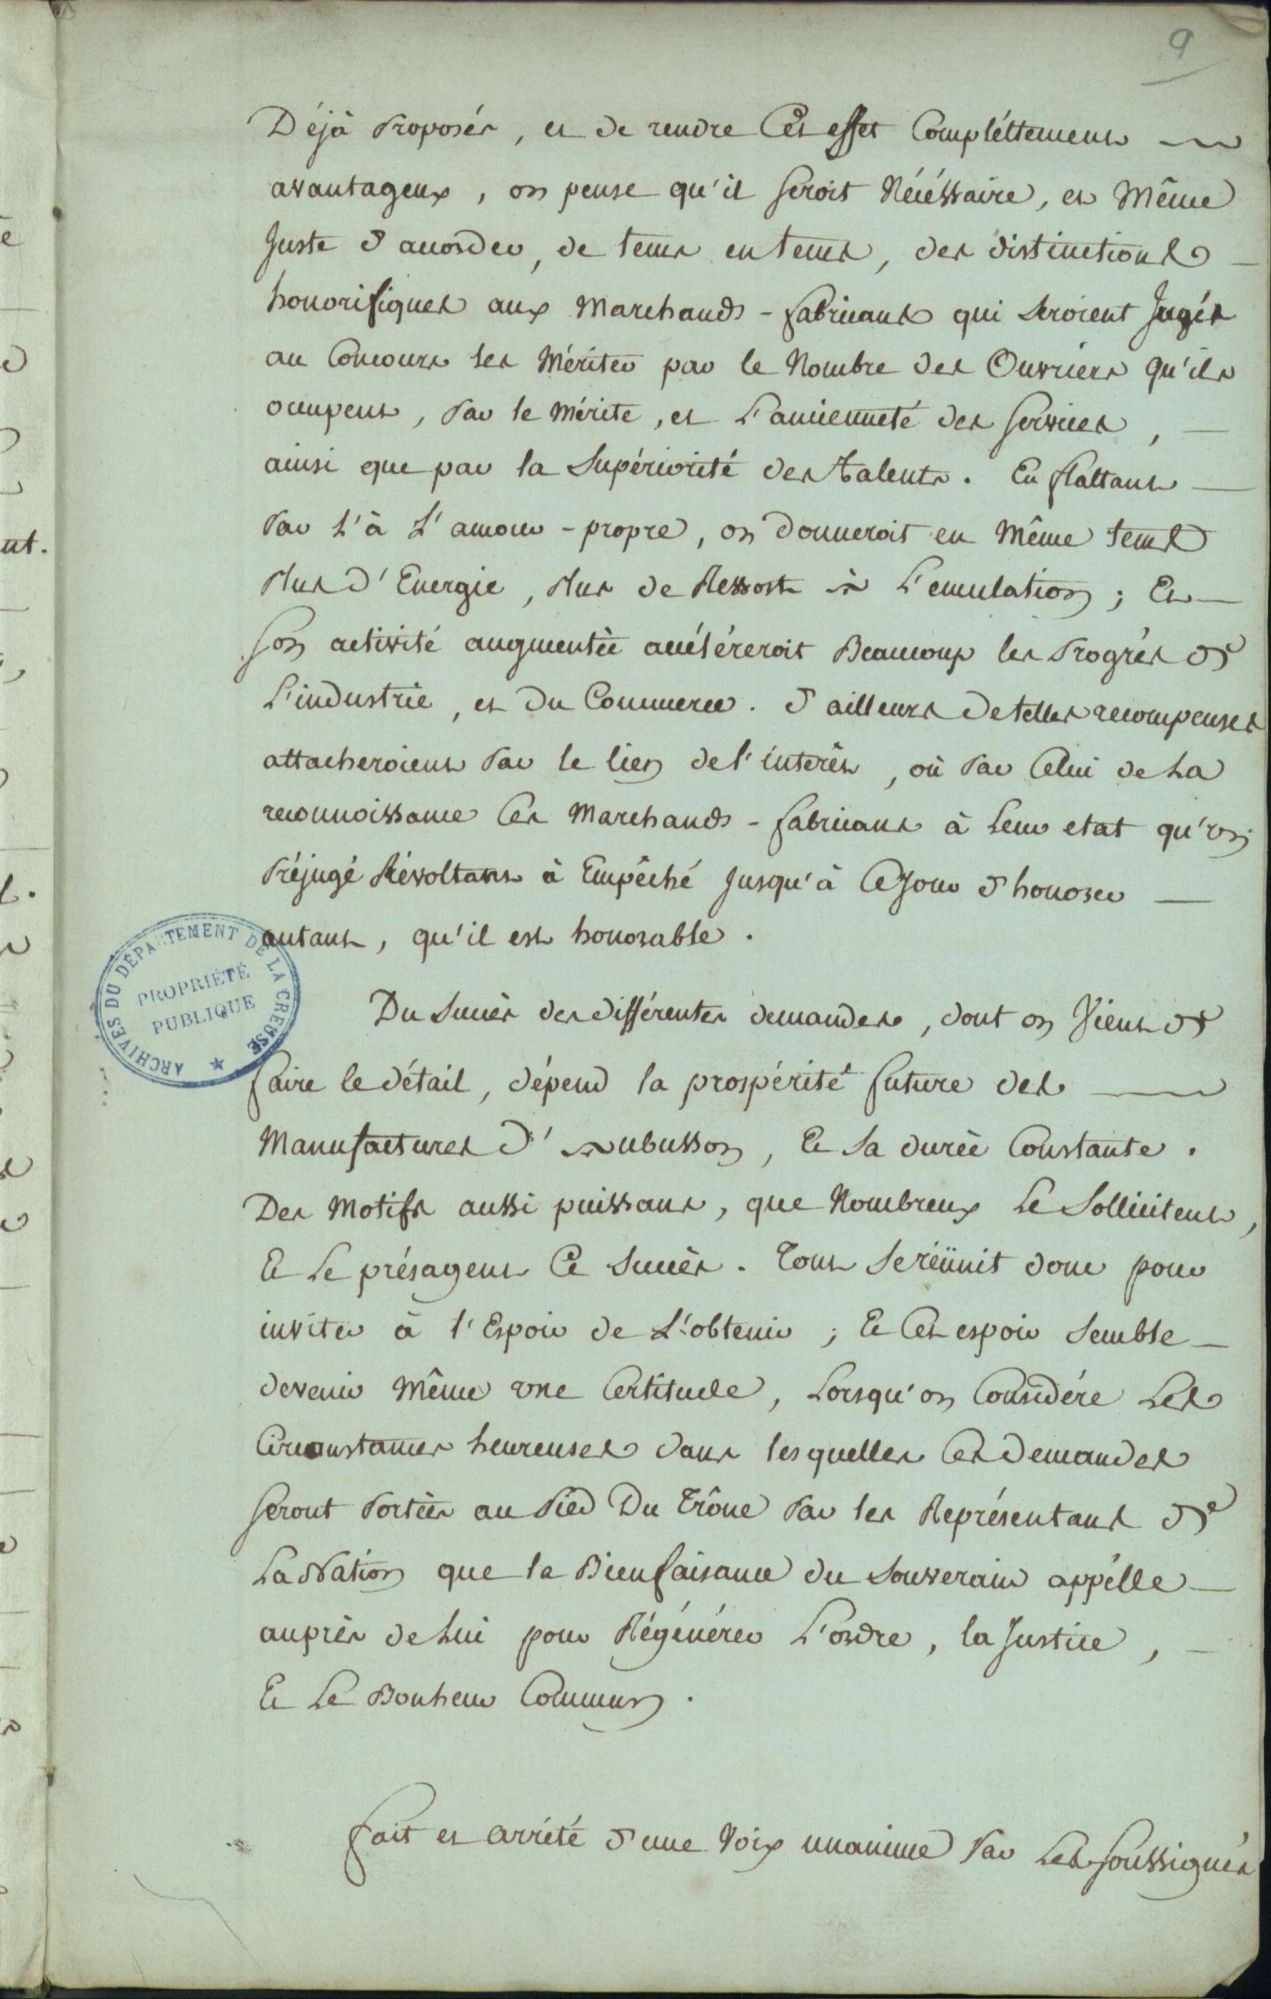 9
Déjà Proposés, et de rendre Cet effet Complèttement
avantageux, on pense qu'il seroit Nécéssaire, et Même
Juste d'acorder, de tems en tems, des distinctions
honorifiques aux Marchands-fabricans qui seroient Jugés
au Concours les Mériter par le Nombre des Ouvriers qu'ils
ocupent, Par le Mérite, et L'ancienneté des Services,
ainsi que par la Supériorité des Talents. En flattant
Par L'à L'amour-propre, on donneroit en Même tems
Plus d'Energie, Plus de Ressort à L'emulation; Et
Son activité augmentée accéléreroit Beaucoup les Progrès de
L'industrie, et du Commerce. d'ailleurs de telles recompenses
attacheroient Par le lien de l'interêt, où Par Celui de La
reconnoissance Ces Marchands-fabricans à Leur etat qu'un
Préjugé Révoltant à Empêché Jusqu'à Ce Jour d'honorer
autant, qu'il est honorable.
Du Succès des différentes demandes, dont on Vient de
faire le détail, dépend la prospérité future des
Manufactures d'Aubusson, Et Sa durée Constante.
Des Motifs aussi puissans, que Nombreux Le Sollicitent,
Et Le présagent Ce Succès. Tout Se réünit donc pour
inviter à l'Espoir de L'obtenir; Et Cet espoir Semble
devenir Même une Certitude, Lorsqu'on Considère Les
Circonstances heureuses dans lesquelles Ces Demandes
Seront Portées au Pied Du Trône Par les Représentans de
La Nation que la Bienfaisance du Souverain appèlle
auprès de Lui pour Régénérer L'ordre, la Justice,
Et Le Bonheur Commun.
Fait et arrété d'une Voix unanime Par Les Soussignés
ARCHIVES DU DÉPARTEMENT DE LA CREUSE
PROPRIÉTÉ
PUBLIQUE